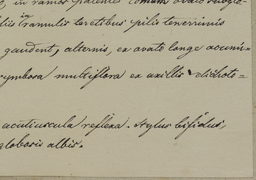 in ramos patentes comam ovato
liis in ramulis teretibus pilis tenerrimis
gaudent, alternis, ex ovato longe acumi=
cymbosa multiflora ex axillis dichoto=
acutiuscula reflexa. Stylus bifidus,
globosis albis.